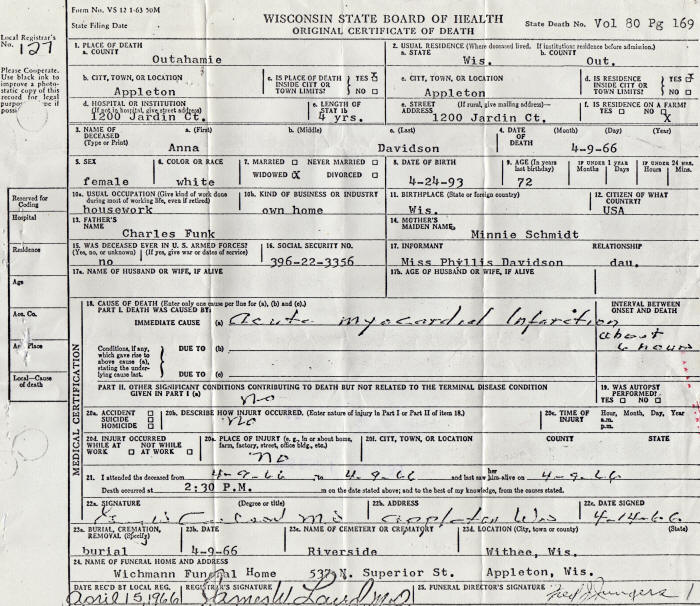 Form No. VS 12 1-63 50M
WISCONSIN STATE BOARD OF HEALTH
State Filing Date
ORIGINAL CERTIFICATE OF DEATH
State Death No. Vol 80 Pg 169
Local Registrar's No. 127
Please Cooperate. Use black ink to improve a photostatic copy of this record for legal
1. PLACE OF DEATH
a. COUNTY
Outahamie
2. USUAL RESIDENCE (Where deceased lived. If institution: residence before admission.)
a. STATE
Wis.
b. COUNTY
Out.
b. CITY, TOWN, OR LOCATION
Appleton
c. IS PLACE OF DEATH INSIDE CITY OR TOWN LIMITS? YES X NO
c. CITY, TOWN, OR LOCATION
Appleton
d. IS RESIDENCE INSIDE CITY OR TOWN LIMITS? YES X NO
d. HOSPITAL OR INSTITUTION (If not in hospital, give street address)
1200 Jardin Ct.
e. LENGTH OF STAY IN 1b
4 yrs.
e. STREET ADDRESS (If rural, give mailing address)
1200 Jardin Ct.
f. IS RESIDENCE ON A FARM? YES NO X
3. NAME OF DECEASED (Type or Print)
a. (First)
Anna
b. (Middle)
c. (Last)
Davidson
4. DATE OF DEATH (Month) (Day) (Year)
4-9-66
5. SEX
female
6. COLOR OR RACE
white
7. MARRIED NEVER MARRIED
WIDOWED X DIVORCED
8. DATE OF BIRTH
4-24-93
9. AGE (In years last birthday)
72
IF UNDER 1 YEAR
Months Days
IF UNDER 24 HRS.
Hours Mins.
10a. USUAL OCCUPATION (Give kind of work done during most of working life, even if retired)
housework
10b. KIND OF BUSINESS OR INDUSTRY
own home
11. BIRTHPLACE (State or foreign country)
Wis.
12. CITIZEN OF WHAT COUNTRY?
USA
13. FATHER'S NAME
Charles Funk
14. MOTHER'S MAIDEN NAME
Minnie Schmidt
15. WAS DECEASED EVER IN U. S. ARMED FORCES? (Yes, no, or unknown) (If yes, give war or dates of service)
no
16. SOCIAL SECURITY NO.
396-22-3356
17. INFORMANT
Miss Phyllis Davidson
RELATIONSHIP
dau.
17a. NAME OF HUSBAND OR WIFE, IF ALIVE
17b. AGE OF HUSBAND OR WIFE, IF ALIVE
Reserved for Coding
Hospital
Residence
Age
Acc. Co.
Ac Place
Local—Cause of death
MEDICAL CERTIFICATION
18. CAUSE OF DEATH (Enter only one cause per line for (a), (b) and (c).)
PART I. DEATH WAS CAUSED BY:
IMMEDIATE CAUSE (a) Acute myocardial Infarction
INTERVAL BETWEEN ONSET AND DEATH
about 6 hours
Conditions, if any, which gave rise to above cause (a), stating the underlying cause last.
DUE TO (b)
DUE TO (c)
PART II. OTHER SIGNIFICANT CONDITIONS CONTRIBUTING TO DEATH BUT NOT RELATED TO THE TERMINAL DISEASE CONDITION GIVEN IN PART I (a)
no
19. WAS AUTOPSY PERFORMED? YES NO
20a. ACCIDENT
SUICIDE
HOMICIDE
20b. DESCRIBE HOW INJURY OCCURRED. (Enter nature of injury in Part I or Part II of item 18.)
no
20c. TIME OF INJURY
Hour, Month, Day, Year
a.m.
p.m.
20d. INJURY OCCURRED
WHILE AT WORK NOT WHILE AT WORK
20e. PLACE OF INJURY (e. g., in or about home, farm, factory, street, office bldg., etc.)
no
20f. CITY, TOWN, OR LOCATION
COUNTY
STATE
21. I attended the deceased from 4-9-66 to 4-9-66 and last saw her him alive on 4-9-66
Death occurred at 2:30 P.M. m on the date stated above; and to the best of my knowledge, from the causes stated.
22a. SIGNATURE (Degree or title)
MD
22b. ADDRESS
Appleton Wis
22c. DATE SIGNED
4-14-66
23a. BURIAL, CREMATION, REMOVAL (Specify)
burial
23b. DATE
4-9-66
23c. NAME OF CEMETERY OR CREMATORY
Riverside
23d. LOCATION (City, town or county) (State)
Withee, Wis.
24. NAME OF FUNERAL HOME AND ADDRESS
Wichmann Funeral Home 537 N. Superior St. Appleton, Wis.
DATE REC'D BY LOCAL REG.
April 15, 1966
REGISTRAR'S SIGNATURE
25. FUNERAL DIRECTOR'S SIGNATURE